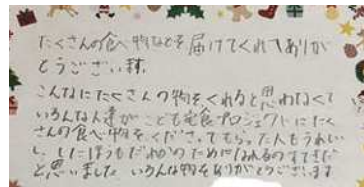 たくさんの食べ物などを届けてくれてありが
とうございます。
こんなにたくさんの物をくれると思わなくて
いろんな人達がこども定食プロジェクトにたく
さんの食べ物をくださってもらった人もうれしい
し、したほうもだれかのためになれるのもすてきだ
と思いました。いろんな物をありがとうございます